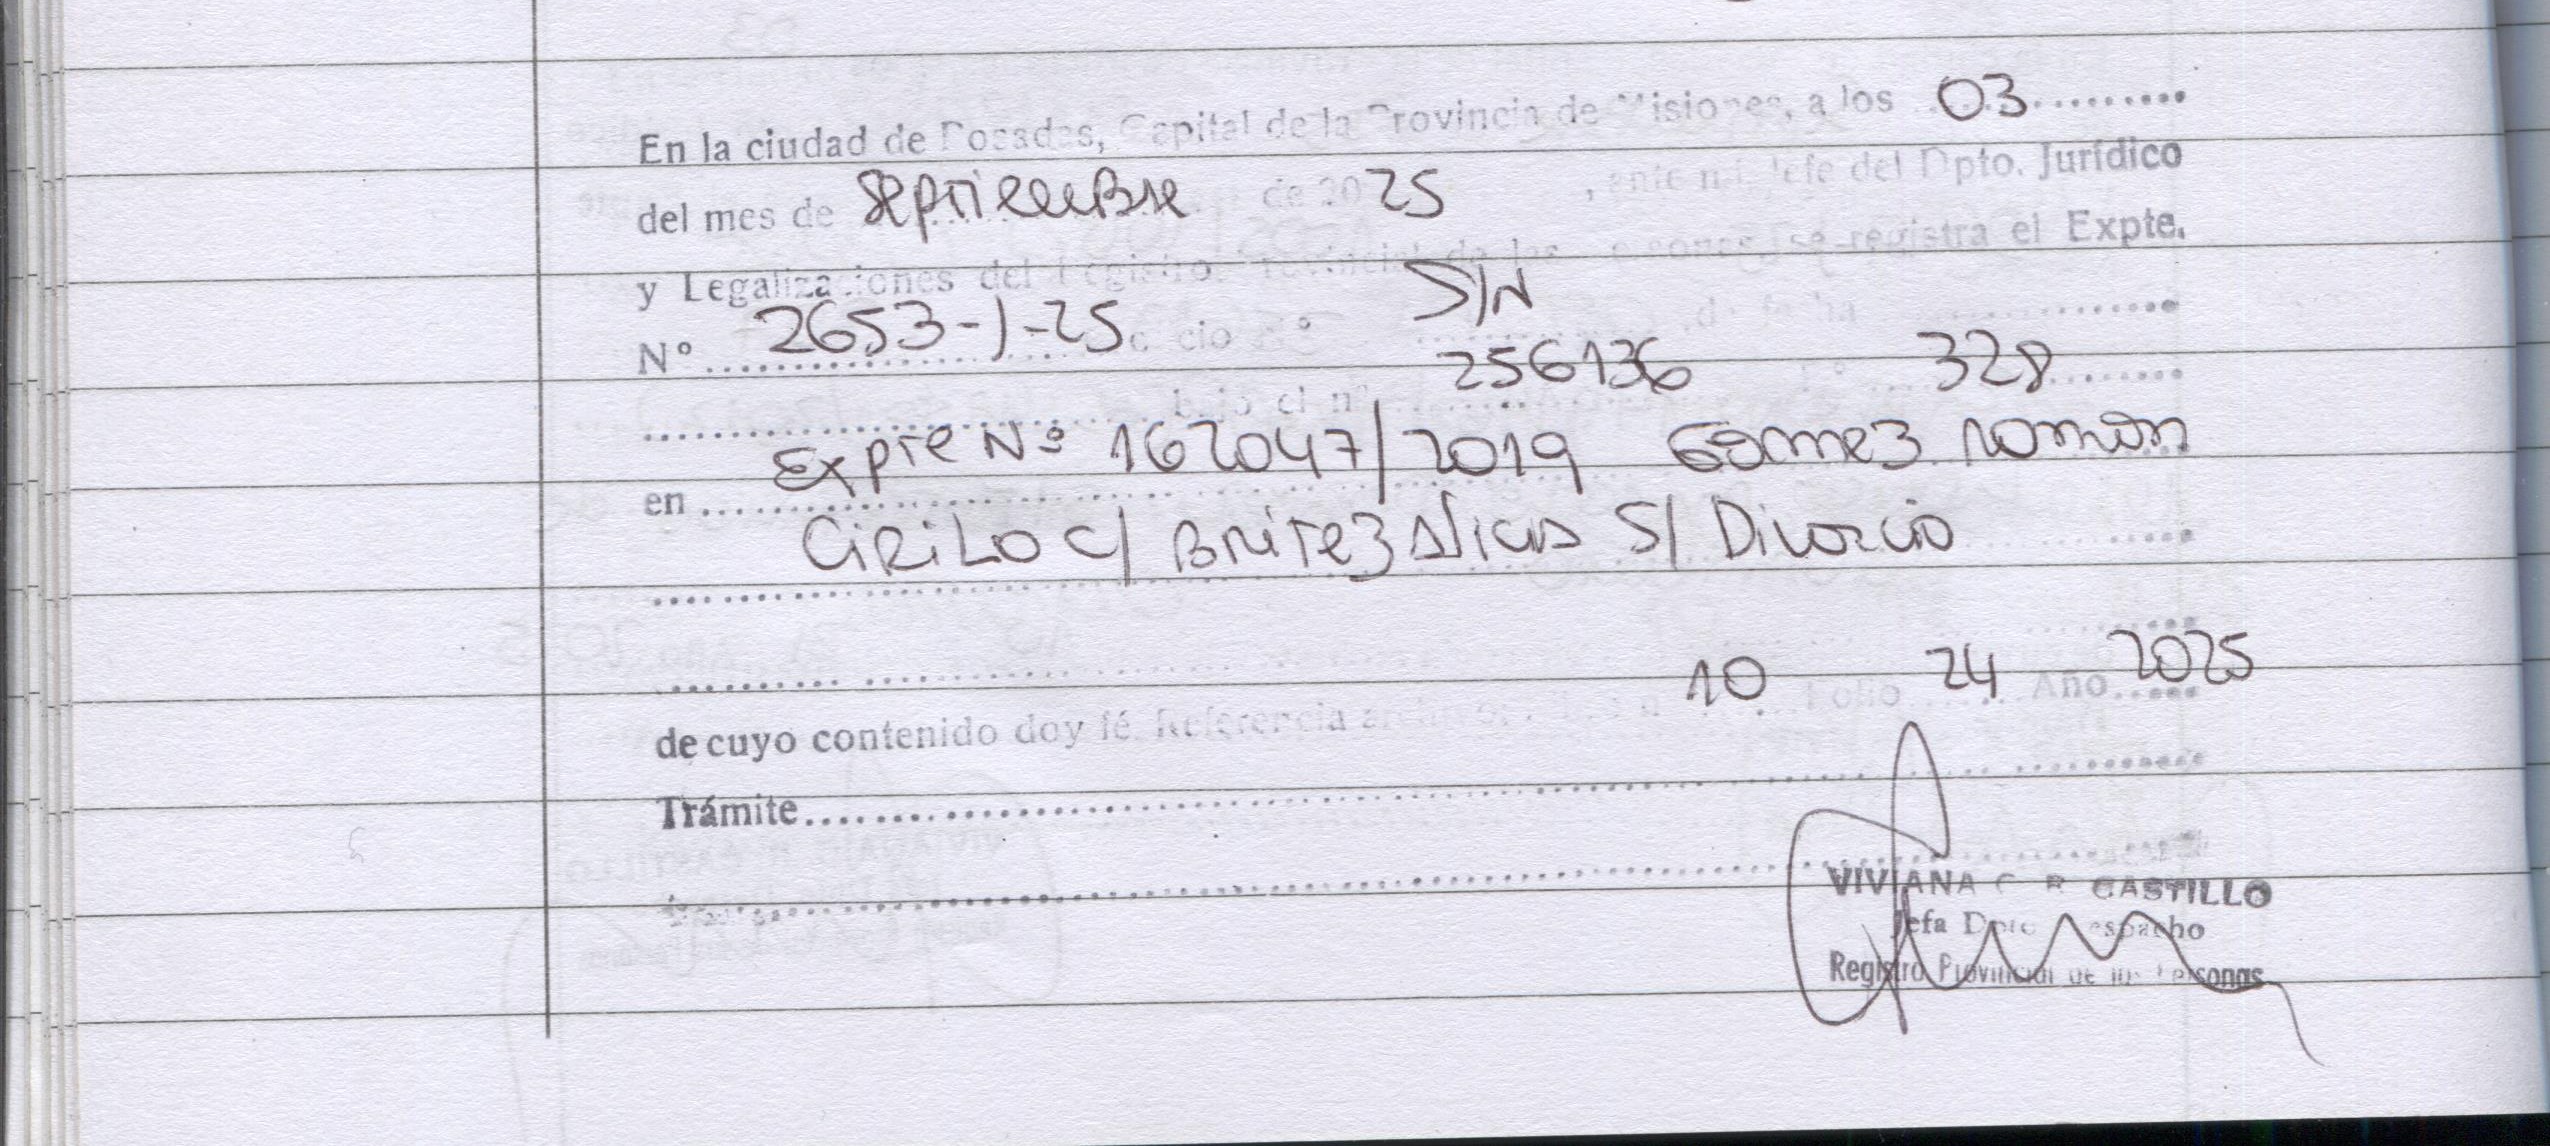 En la ciudad de Posadas, Capital de la Provincia de Misiones, a los 03
del mes de septiembre de 2025, ante mi, Jefe del Dpto. Jurídico
y Legalizaciones del Registro Provincial de las Personas, se registra el Expte.
Nº 2653-J-25 oficio nº S/N de fecha
bajo el nº 256136 Fº 328
en Expte Nº 162047/2019 Gomez roman
CiRiLo c/ Britez Alicia S/ Divorcio
10 24 2025
de cuyo contenido doy fé. Referencia Folio Año
Trámite
VIVIANA C. R. CASTILLO
Jefa Dpto. Despacho
Registro Provincial de las Personas